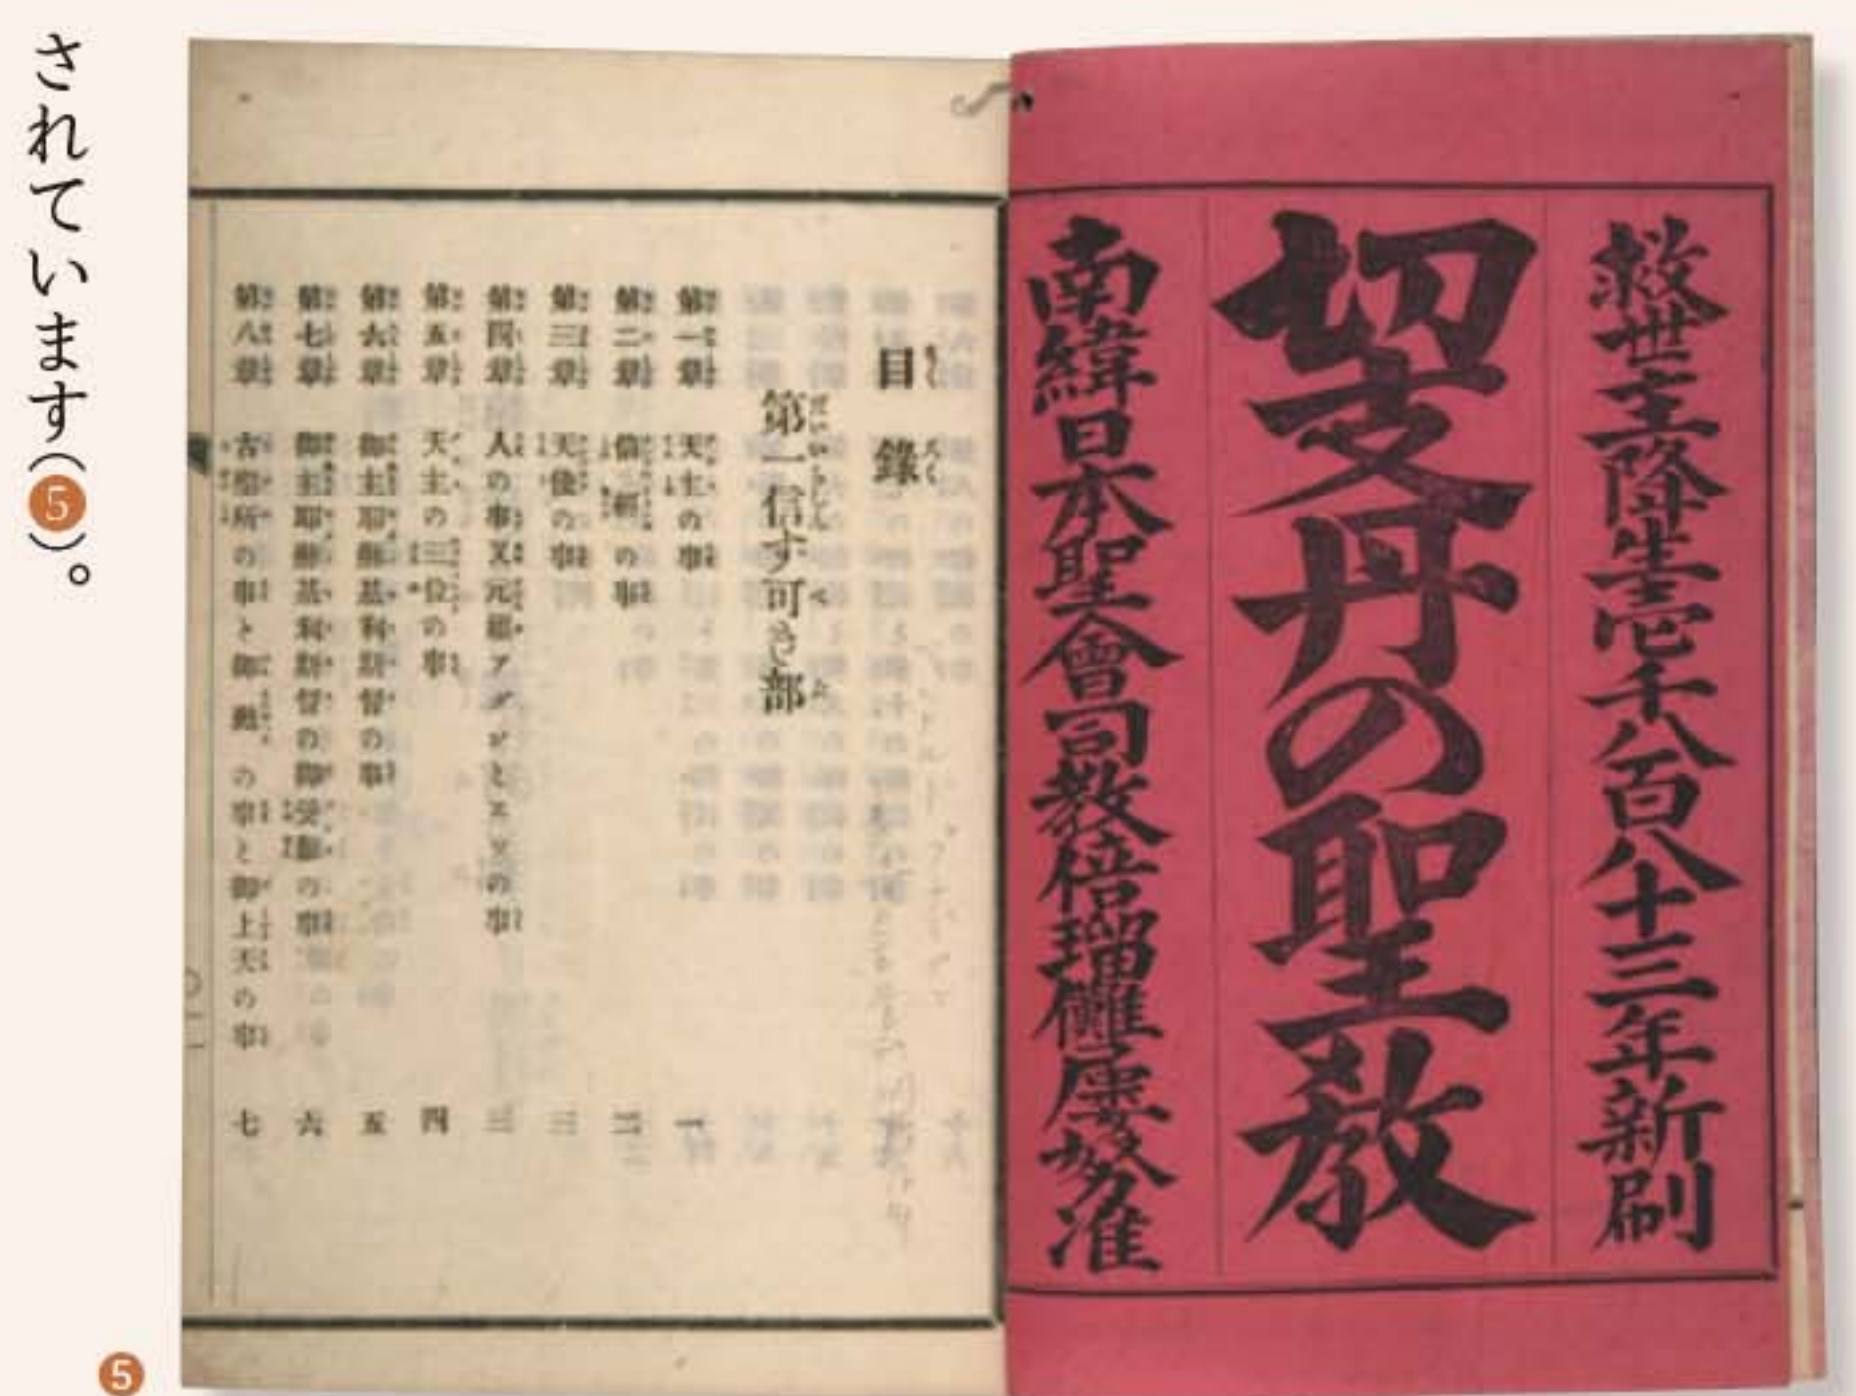 救世主降生壱千八百八十三年新刷
切支丹の聖教
南緯日本聖會司教倍瑠儺屡努准
目録
第一信ず可き部
第一章 天主の事 一
第二章 の事 二
第三章 天使の事 三
第四章 人の事又元祖アダンとエワの事 三
第五章 天主の三位の事 四
第六章 御主耶蘇基利斯督の事 五
第七章 御主耶蘇基利斯督の御受難の事 六
第八章 古聖所の事と御 の事と御上天の事 七
されています(5)。
5